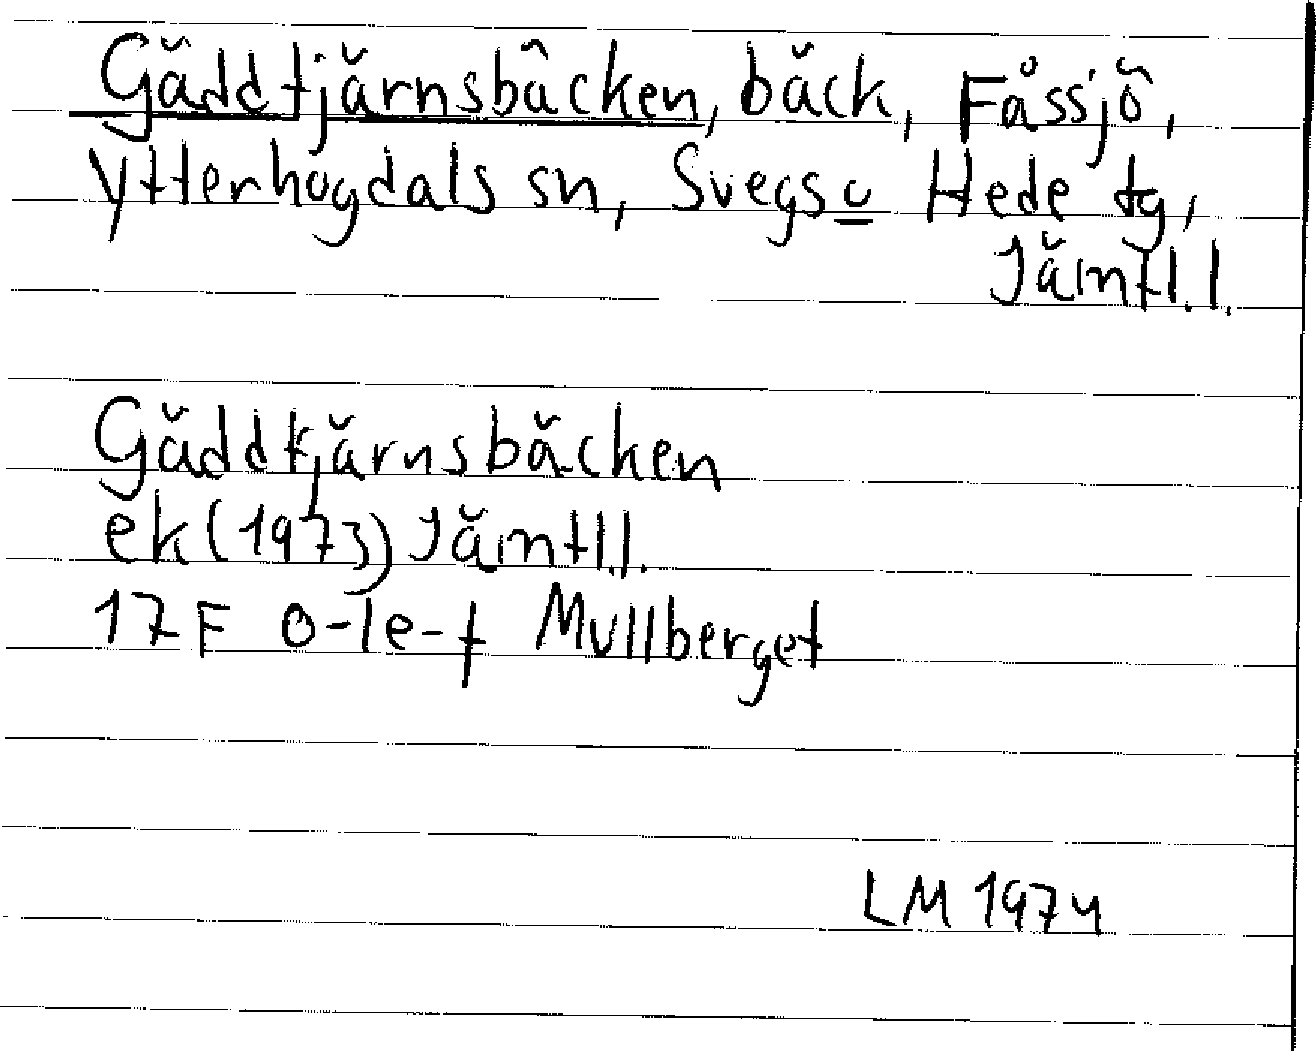 Gäddtjärnsbäcken, bäck, Fåssjö,
Ytterhogdals sn, Svegs o Hede tg,
Jämtl.l.
Gäddtjärnsbäcken
ek(1973) Jämtl.l.
17F 0-1e-f Mullberget
LM 1974